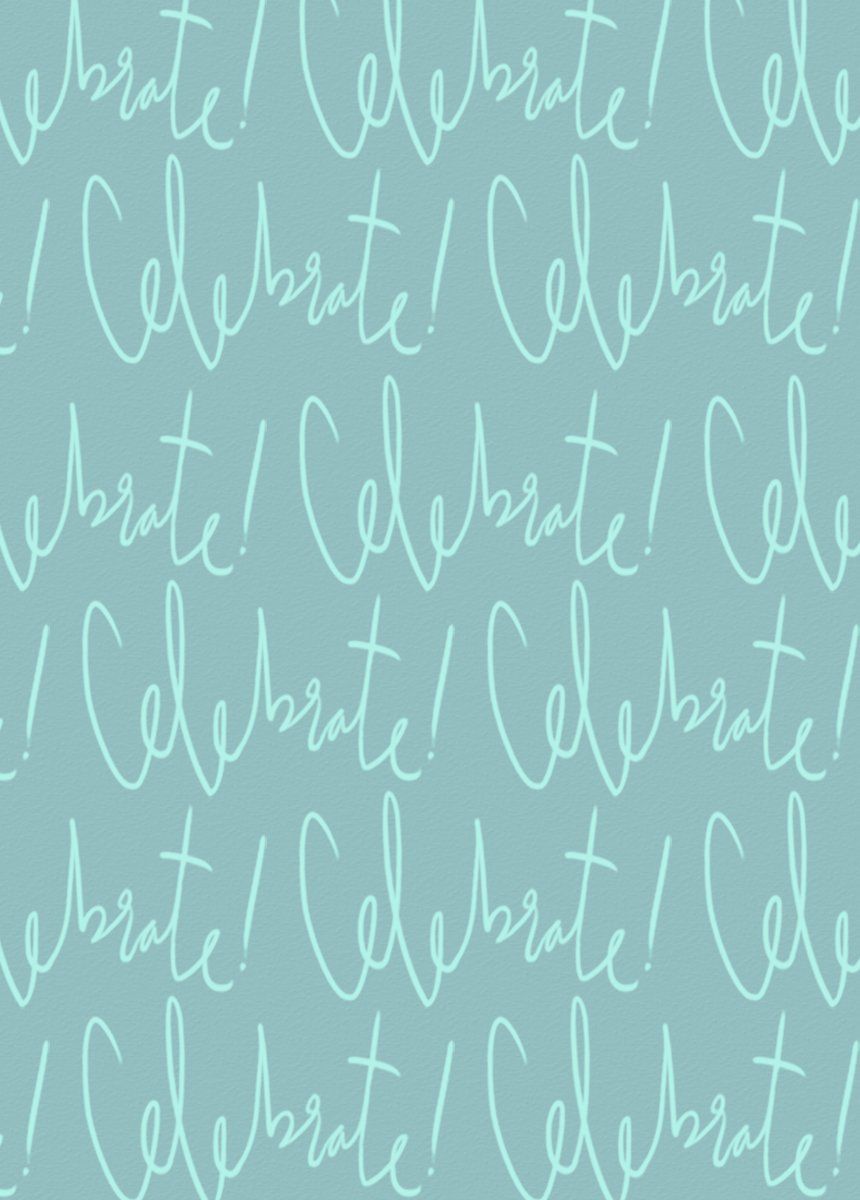 ebrate! Celebrate! Cele
! Celebrate! Celebrate!
ebrate! Celebrate! Cele
! Celebrate! Celebrate!
ebrate! Celebrate! Cele
! Celebrate! Celebrate!